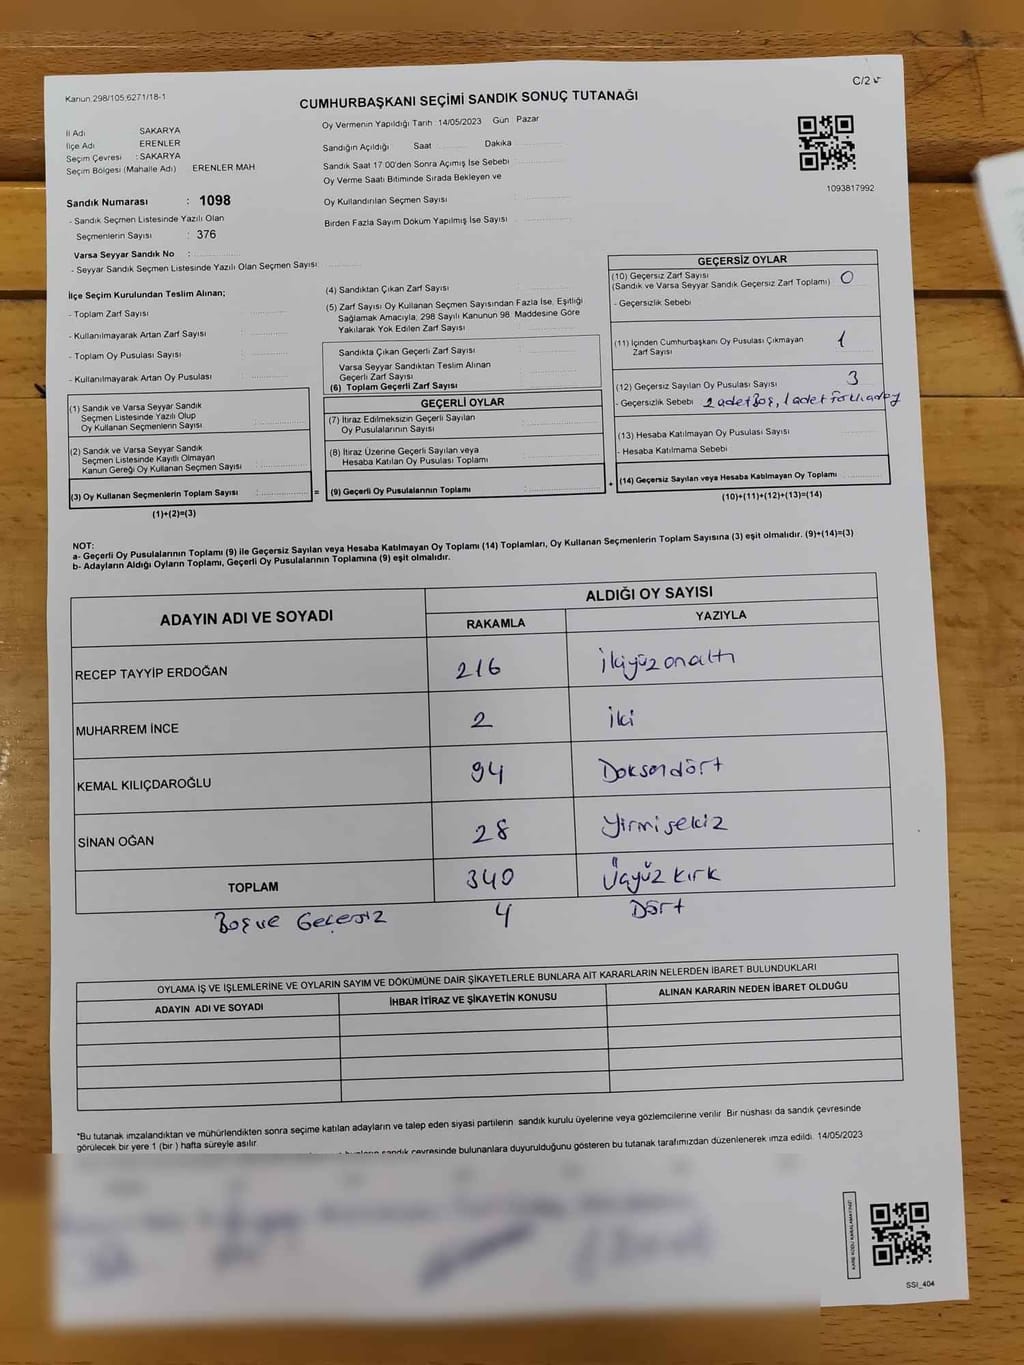 Kanun 298/105,6271/18-1
C/2
CUMHURBAŞKANI SEÇİMİ SANDIK SONUÇ TUTANAĞI
İl Adı SAKARYA
İlçe Adı ERENLER
Seçim Çevresi : SAKARYA
Seçim Bölgesi (Mahalle Adı) ERENLER MAH
Oy Vermenin Yapıldığı Tarih : 14/05/2023 Gün : Pazar
Sandığın Açıldığı Saat Dakika
Sandık Saat 17:00'den Sonra Açımış İse Sebebi
Oy Verme Saati Bitiminde Sırada Bekleyen ve
Oy Kullandırılan Seçmen Sayısı
Birden Fazla Sayım Döküm Yapılmış İse Sayısı
1093817992
Sandık Numarası : 1098
- Sandık Seçmen Listesinde Yazılı Olan
Seçmenlerin Sayısı : 376
Varsa Seyyar Sandık No :
- Seyyar Sandık Seçmen Listesinde Yazılı Olan Seçmen Sayısı:
İlçe Seçim Kurulundan Teslim Alınan;
- Toplam Zarf Sayısı :
- Kullanılmayarak Artan Zarf Sayısı :
- Toplam Oy Pusulası Sayısı :
- Kullanılmayarak Artan Oy Pusulası :
(1) Sandık ve Varsa Seyyar Sandık
Seçmen Listesinde Yazılı Olup
Oy Kullanan Seçmenlerin Sayısı :
(2) Sandık ve Varsa Seyyar Sandık
Seçmen Listesinde Kayıtlı Olmayan
Kanun Gereği Oy Kullanan Seçmen Sayısı :
(3) Oy Kullanan Seçmenlerin Toplam Sayısı : =
(1)+(2)=(3)
(4) Sandıktan Çıkan Zarf Sayısı :
(5) Zarf Sayısı Oy Kullanan Seçmen Sayısından Fazla İse, Eşitliği
Sağlamak Amacıyla, 298 Sayılı Kanunun 98. Maddesine Göre
Yakılarak Yok Edilen Zarf Sayısı :
Sandıkta Çıkan Geçerli Zarf Sayısı :
Varsa Seyyar Sandıktan Teslim Alınan
Geçerli Zarf Sayısı :
(6) Toplam Geçerli Zarf Sayısı
GEÇERLİ OYLAR
(7) İtiraz Edilmeksizin Geçerli Sayılan
Oy Pusulalarının Sayısı :
(8) İtiraz Üzerine Geçerli Sayılan veya
Hesaba Katılan Oy Pusulası Toplamı :
(9) Geçerli Oy Pusulalarının Toplamı : +
GEÇERSİZ OYLAR
(10) Geçersiz Zarf Sayısı
(Sandık ve Varsa Seyyar Sandık Geçersiz Zarf Toplamı) 0
- Geçersizlik Sebebi
(11) İçinden Cumhurbaşkanı Oy Pusulası Çıkmayan
Zarf Sayısı 1
(12) Geçersiz Sayılan Oy Pusulası Sayısı 3
- Geçersizlik Sebebi 2 adet Boş, 1 adet farklı aday
(13) Hesaba Katılmayan Oy Pusulası Sayısı
- Hesaba Katılmama Sebebi
(14) Geçersiz Sayılan veya Hesaba Katılmayan Oy Toplamı
(10)+(11)+(12)+(13)=(14)
NOT:
a- Geçerli Oy Pusulalarının Toplamı (9) ile Geçersiz Sayılan veya Hesaba Katılmayan Oy Toplamı (14) Toplamları, Oy Kullanan Seçmenlerin Toplam Sayısına (3) eşit olmalıdır. (9)+(14)=(3)
b- Adayların Aldığı Oyların Toplamı, Geçerli Oy Pusulalarının Toplamına (9) eşit olmalıdır.
ADAYIN ADI VE SOYADI ALDIĞI OY SAYISI
RAKAMLA YAZIYLA
RECEP TAYYİP ERDOĞAN 216 İkiyüzonaltı
MUHARREM İNCE 2 İki
KEMAL KILIÇDAROĞLU 94 Doksandört
SİNAN OĞAN 28 Yirmisekiz
TOPLAM 340 Üçyüz kırk
Boş ve Geçersiz 4 Dört
OYLAMA İŞ VE İŞLEMLERİNE VE OYLARIN SAYIM VE DÖKÜMÜNE DAİR ŞİKAYETLERLE BUNLARA AİT KARARLARIN NELERDEN İBARET BULUNDUKLARI
ADAYIN ADI VE SOYADI İHBAR İTİRAZ VE ŞİKAYETİN KONUSU ALINAN KARARIN NEDEN İBARET OLDUĞU
*Bu tutanak imzalandıktan ve mühürlendikten sonra seçime katılan adayların ve talep eden siyasi partilerin sandık kurulu üyelerine veya gözlemcilerine verilir. Bir nüshası da sandık çevresinde
görülecek bir yere 1 (bir ) hafta süreyle asılır.
sandık çevresinde bulunanlara duyurulduğunu gösteren bu tutanak tarafımızdan düzenlenerek imza edildi. 14/05/2023
KARE KODU KARALAMAYINIZ!
SSI_404